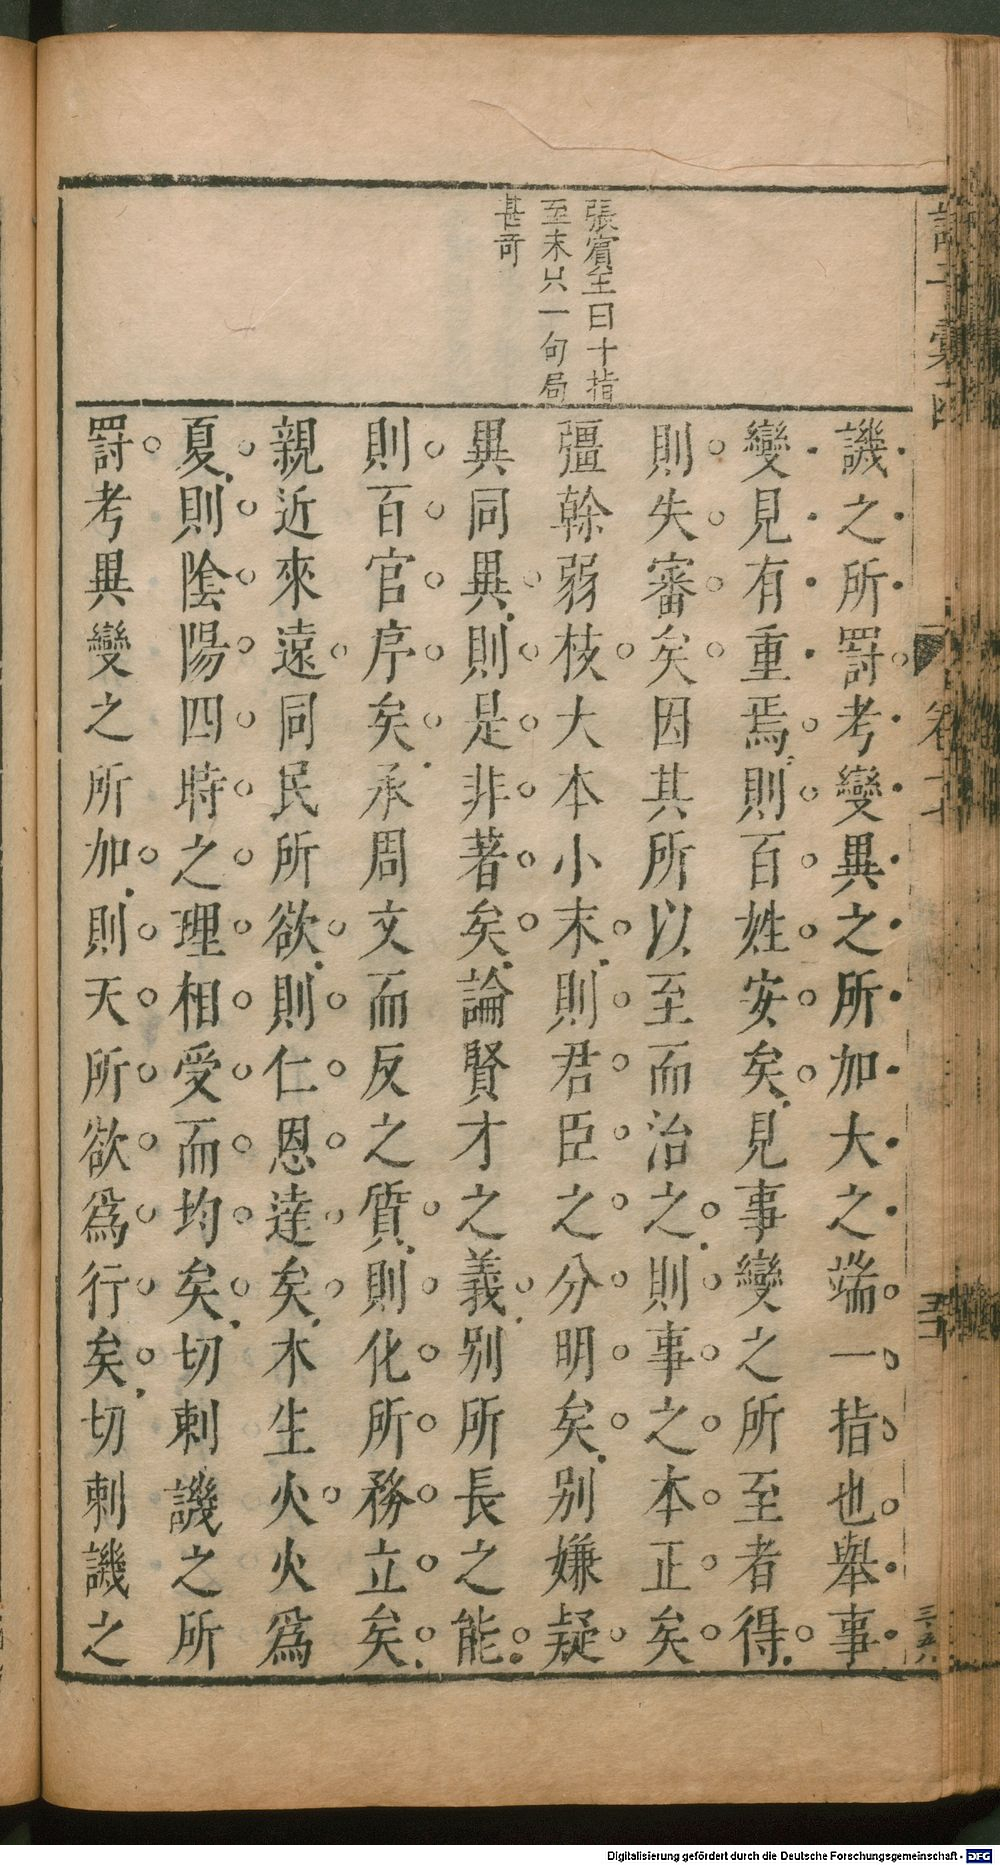 張賓王曰十指
至末只一句局
甚奇
譏之所罸考變異之所加大之端一指也舉事
變見有重焉則百姓安矣見事變之所至者得
則失審矣因其所以至而治之則事之本正矣
彊幹弱枝大本小末則君臣之分明矣别嫌疑
異同異則是非著矣論賢才之義别所長之能
則百官序矣承周文而反之質則化所務立矣
親近來遠同民所欲則仁恩達矣木生火火爲
夏則陰陽四時之理相受而均矣切刺譏之所
罸考異變之所加則天所欲爲行矣切刺譏之
Digitalisierung gefördert durch die Deutsche Forschungsgemeinschaft - DFG